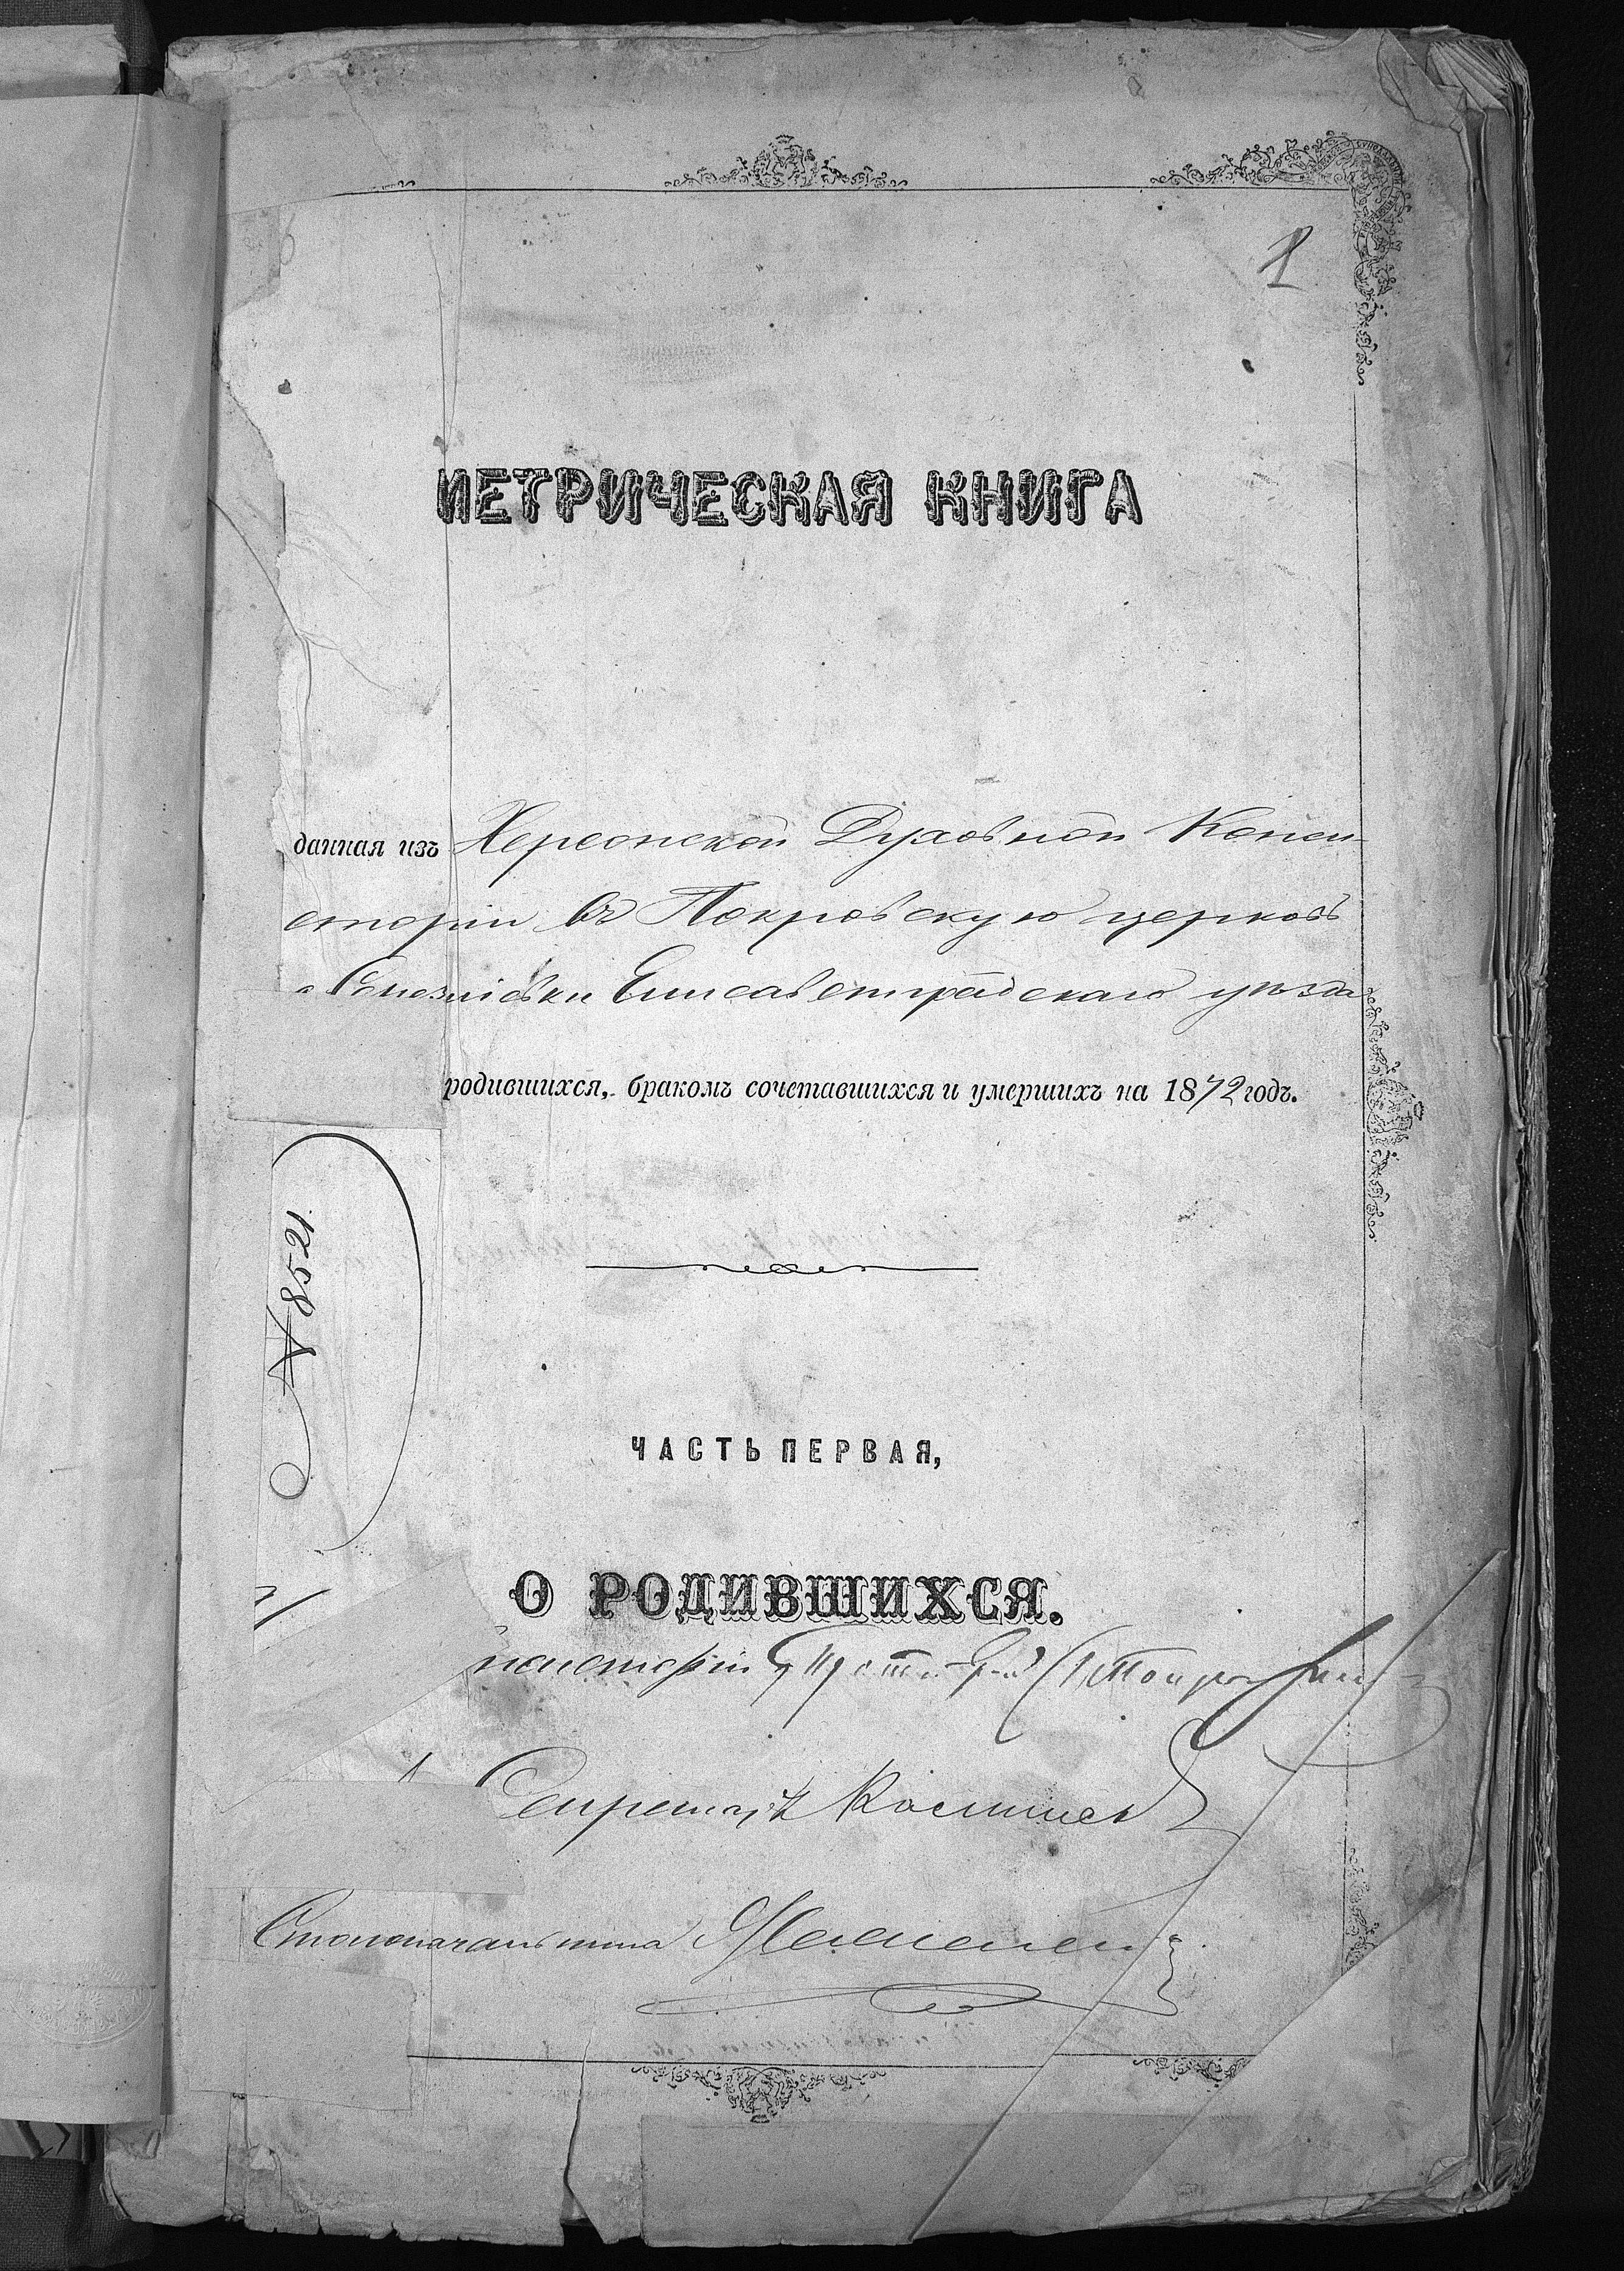 1
МЕТРИЧЕСКАЯ КНИГА
данная изъ Херсонской Духовной Конси-
сторіи въ Покровскую церковь
Елисаветградскаго уѣзда
родившихся, бракомъ сочетавшихся и умершихъ на 1872 годъ.
№ 8521.
ЧАСТЬ ПЕРВАЯ,
О РОДИВШИХСЯ.
Секретарь
Столоначальника